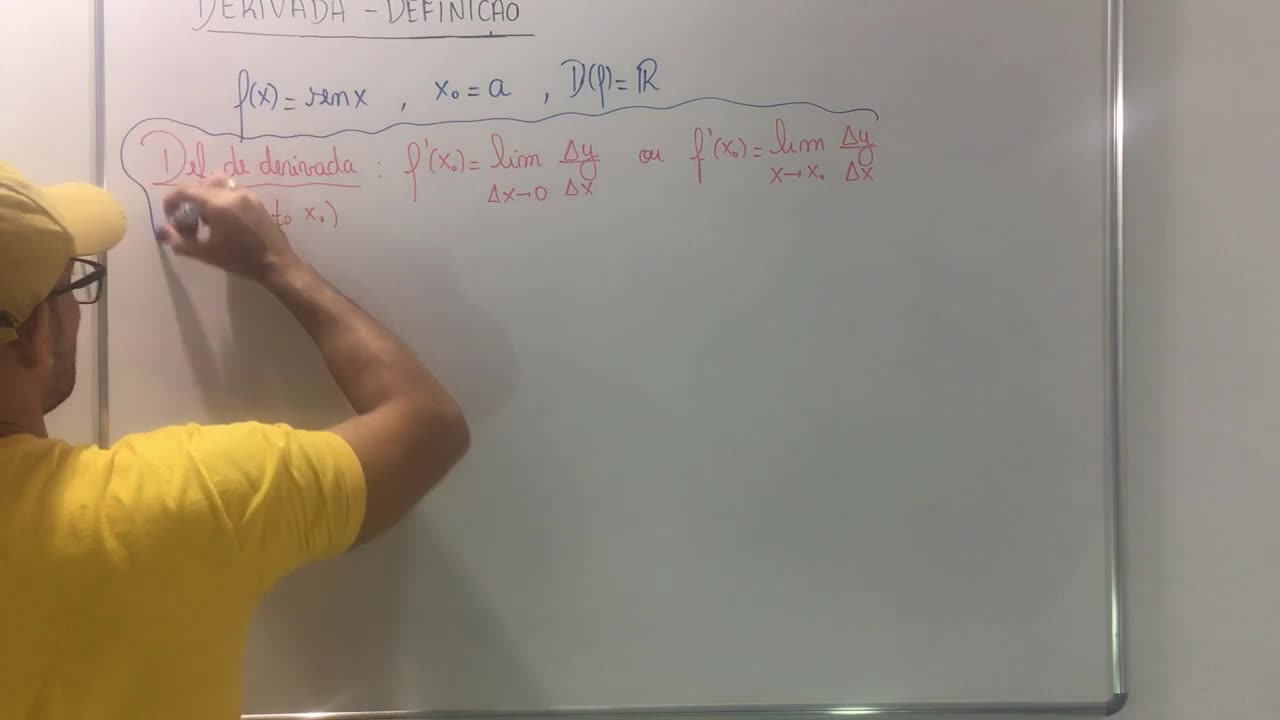 DERIVADA - DEFINIÇÃO
f(x) = sen x , x₀ = a , D(f) = ℝ
Def. de derivada : f'(x₀) = lim Δy/Δx ou f'(x₀) = lim Δy/Δx
Δx→0 x→x₀
x₀)